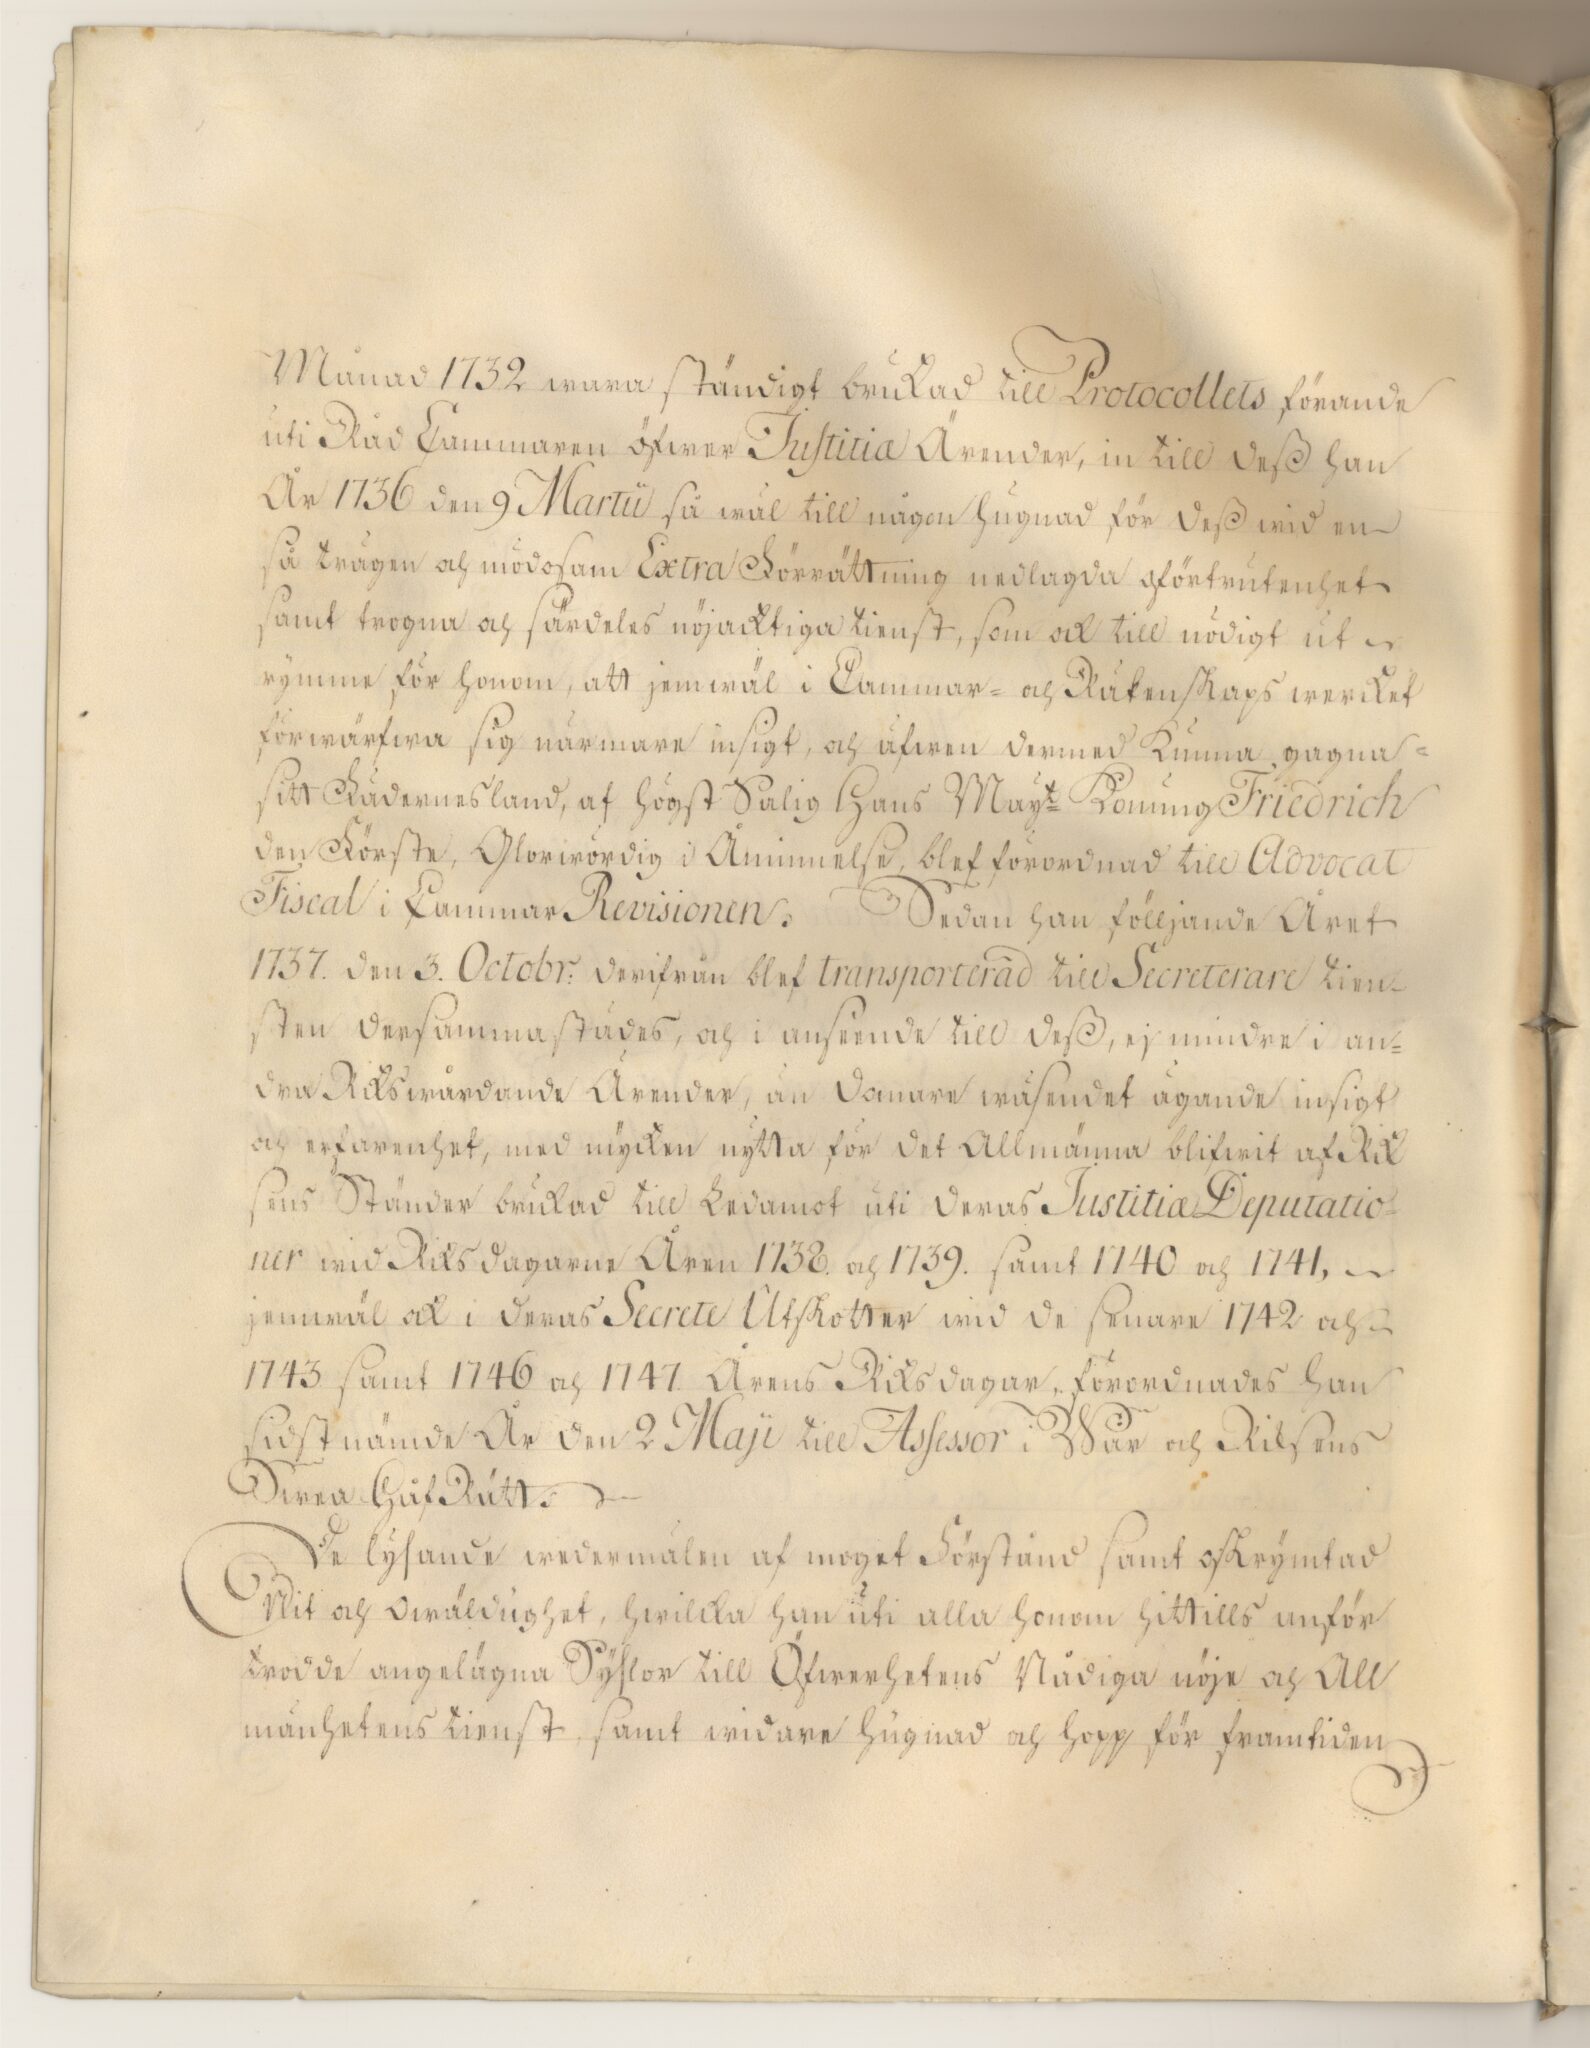 Månad 1732 wara ständigt brukad till Protocollets förande
uti Råd Cammaren öfwer Justitiæ Ärender, in till deß han
År 1736 den 9 Martii så wäl till någon hugnad för deß wid en
så trägen och mödosam Extra Förrättning nedlagda oförtrutenhet
samt trogna och särdeles nöjacktiga tienst, som ock till nödigt ut
rymme för honom, att jemwäl i Cammar- och Räkenskaps wercket
förwärfwa sig närmare insigt, och äfwen dermed kunna gagna
sitt Fädernesland, af högst Salig Hans Mayt: Konung Friedrich
den Förste, Glorwördig i Åminnelse, blef förordnad till Advocat
Fiscal i Cammar Revisionen. Sedan han följande Året
1737. den 3. Octobr: derifrån blef transporterad till Secreterare tien-
sten dersammastädes, och i anseende till deß, ej mindre i an-
dra Rikswårdande Ärender, än Domare wäsendet ägande insigt
och erfarenhet, med mycken nytta för det Allmänna blifwit af Rik
sens Ständer brukad till Ledamot uti deras Justitiæ Deputatio-
ner wid Riksdagarne Åren 1738. och 1739. samt 1740 och 1741,
jemwäl ock i deras Secrete Utskotter wid de senare 1742 och
1743 samt 1746 och 1747 Årens Riksdagar, förordnades han
sidstnämde År den 2 Maji till Assessor i Wår och Riksens
Swea HåfRätt.
De lysande wedermälen af moget Förstånd samt oskrymtad
Nit och Owäldughet, hwilcka han uti alla honom hittills anför
trodde angelägna Syslor till Öfwerhetens Nådiga nöje och All
mänhetens tienst, samt widare hugnad och hopp för framtiden